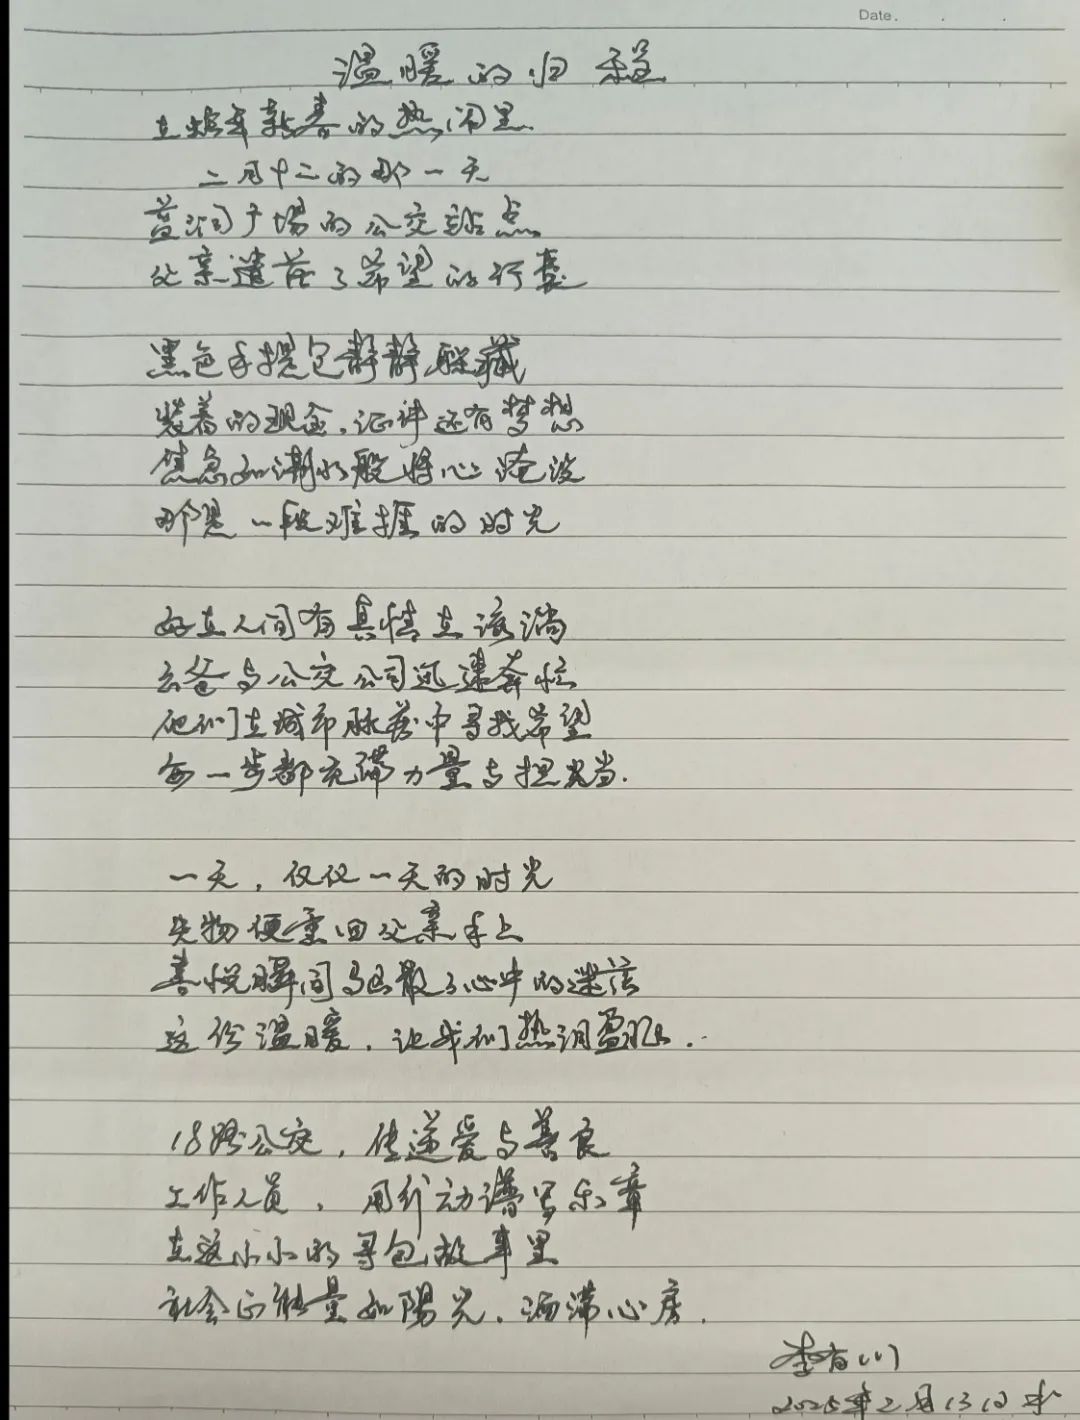 Date.
温暖的归程
在蛇年新春的热闹里
二月十二的那一天
蓝润广场的公交站点
父亲遗落了希望的行囊
黑色手提包静静躲藏
装着的现金，证件还有梦想
焦急如潮水般将心淹没
那是一段难捱的时光
好在人间有真情在流淌
云爸与公交公司迅速奔忙
他们在城市脉络中寻找希望
每一步都充满力量与担当.
一天，仅仅一天的时光
失物便重回父亲手上
喜悦瞬间驱散了心中的迷茫
这份温暖，让我们热泪盈眶.
18路公交，传递爱与善良
工作人员，用行动谱写乐章
在这小小的寻包故事里
社会正能量如陽光，洒满心房.
李有川
2025年2月13日